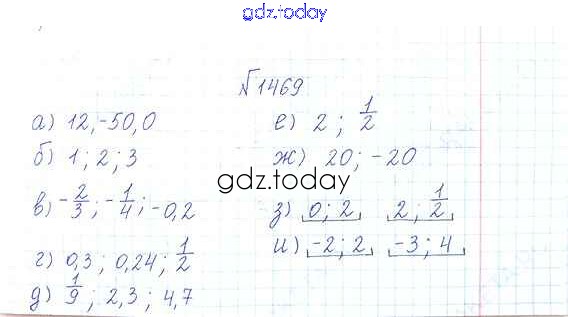 gdz.today
№1469
а) 12, -50, 0
б) 1; 2; 3
в) -2/3; -1/4; -0,2
г) 0,3; 0,24; 1/2
д) 1/9; 2,3; 4,7
е) 2; 1/2
ж) 20; -20
gdz.today
з) 0; 2 2; 1/2
и) -2; 2 -3; 4